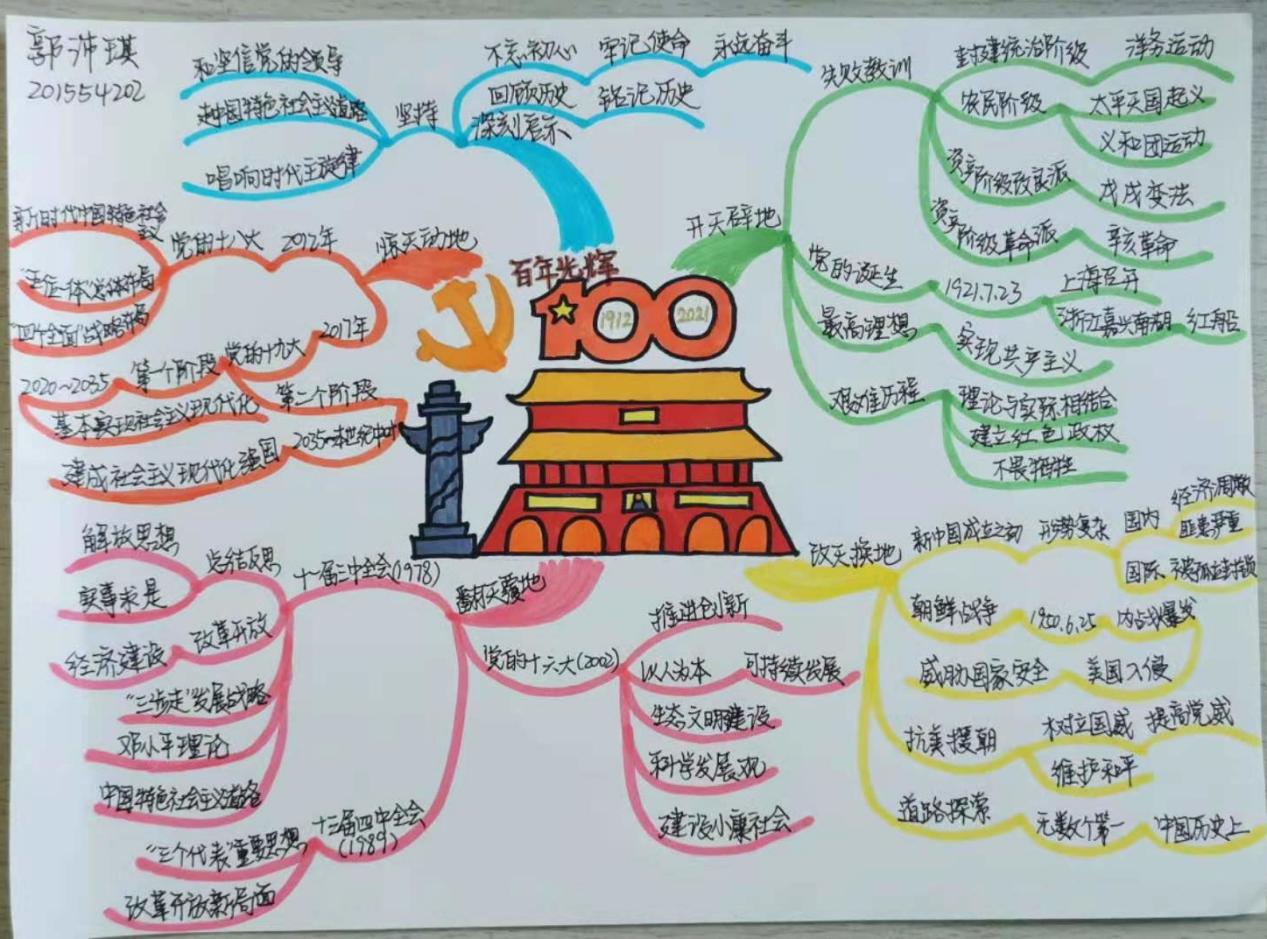 郭沛琪
201554202
和坚信党的领导
走中国特色社会主义道路
唱响时代主旋律
坚持
不忘初心 牢记使命 永远奋斗
回顾历史 铭记历史
深刻启示
百年光辉
100
1912
2021
开天辟地
失败教训
封建统治阶级 洋务运动
农民阶级 太平天国起义
义和团运动
资产阶级改良派 戊戌变法
资产阶级革命派 辛亥革命
党的诞生 1921.7.23 上海召开
浙江嘉兴南湖 红船
最高理想 实现共产主义
艰难历程 理论与实际相结合
建立红色政权
不畏牺牲
惊天动地
2012年
党的十八大
新时代中国特色社会主义
"五位一体"总体布局
"四个全面"战略布局
2017年
党的十九大
第一个阶段
2020~2035
基本实现社会主义现代化
第二个阶段
2035~本世纪中叶
建成社会主义现代化强国
改天换地
新中国成立之初 形势复杂 国内 经济凋敝
匪患严重
国际
朝鲜战争 1950.6.25 内战爆发
威胁国家安全 美国入侵
抗美援朝 树立国威 提高党威
维护和平
道路探索 无数个第一 中国历史上
翻天覆地
十一届三中全会(1978)
总结反思
解放思想
实事求是
改革开放
经济建设
"三步走"发展战略
邓小平理论
中国特色社会主义道路
十三届四中全会
(1989)
"三个代表"重要思想
改革开放新局面
党的十六大(2002)
推进创新
以人为本 可持续发展
生态文明建设
科学发展观
建设小康社会